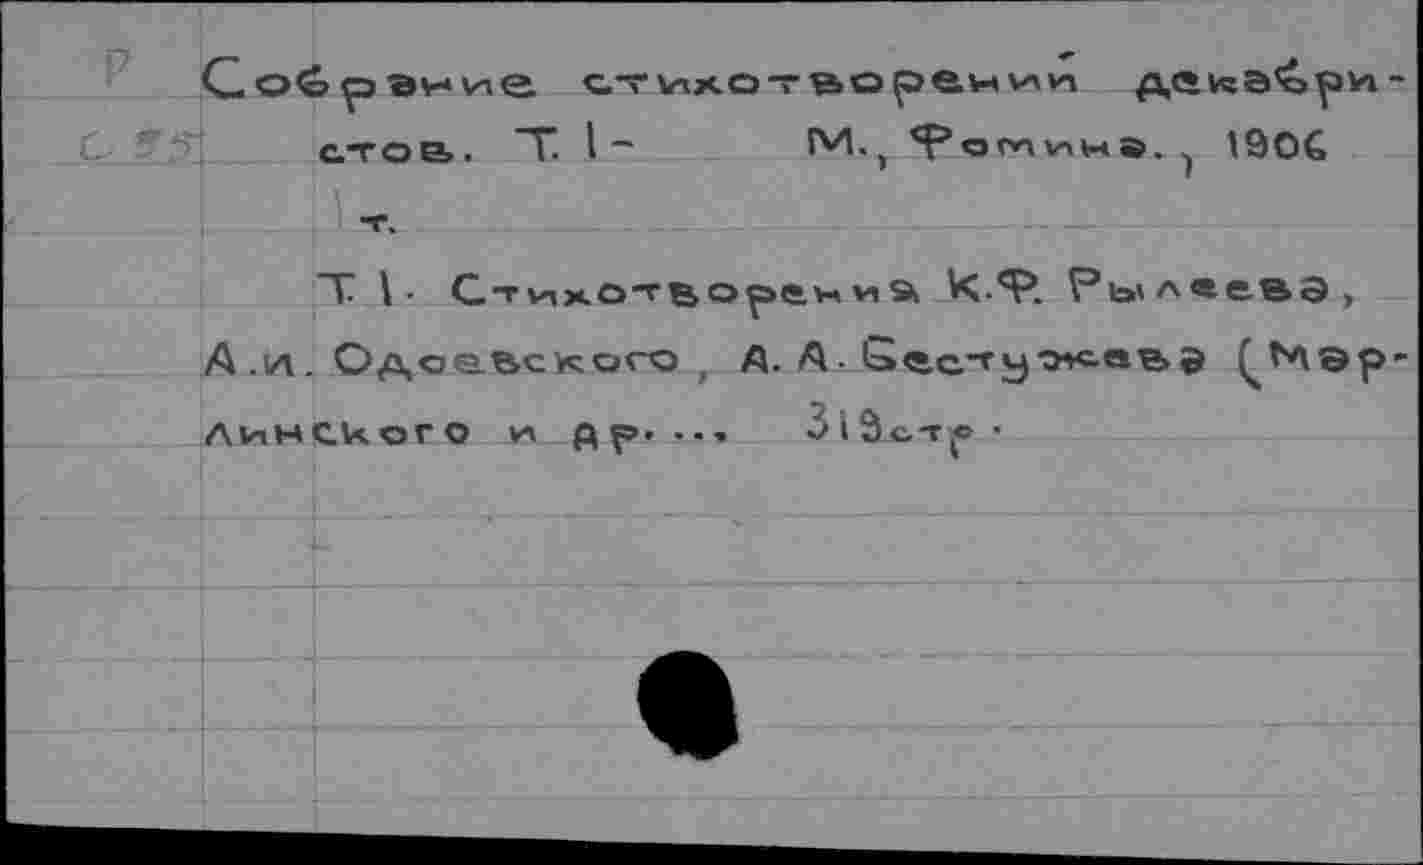 Р Собрание стихотворений декабри-
С 55 стов. Т. 1- М., Фомина., 1906
т.
Т. 1. Стихотворения К.Ф. Рылеева,
А.И. Одоевского, А.А. Бестужева (Мар-
линского и др. ..., 319стр.